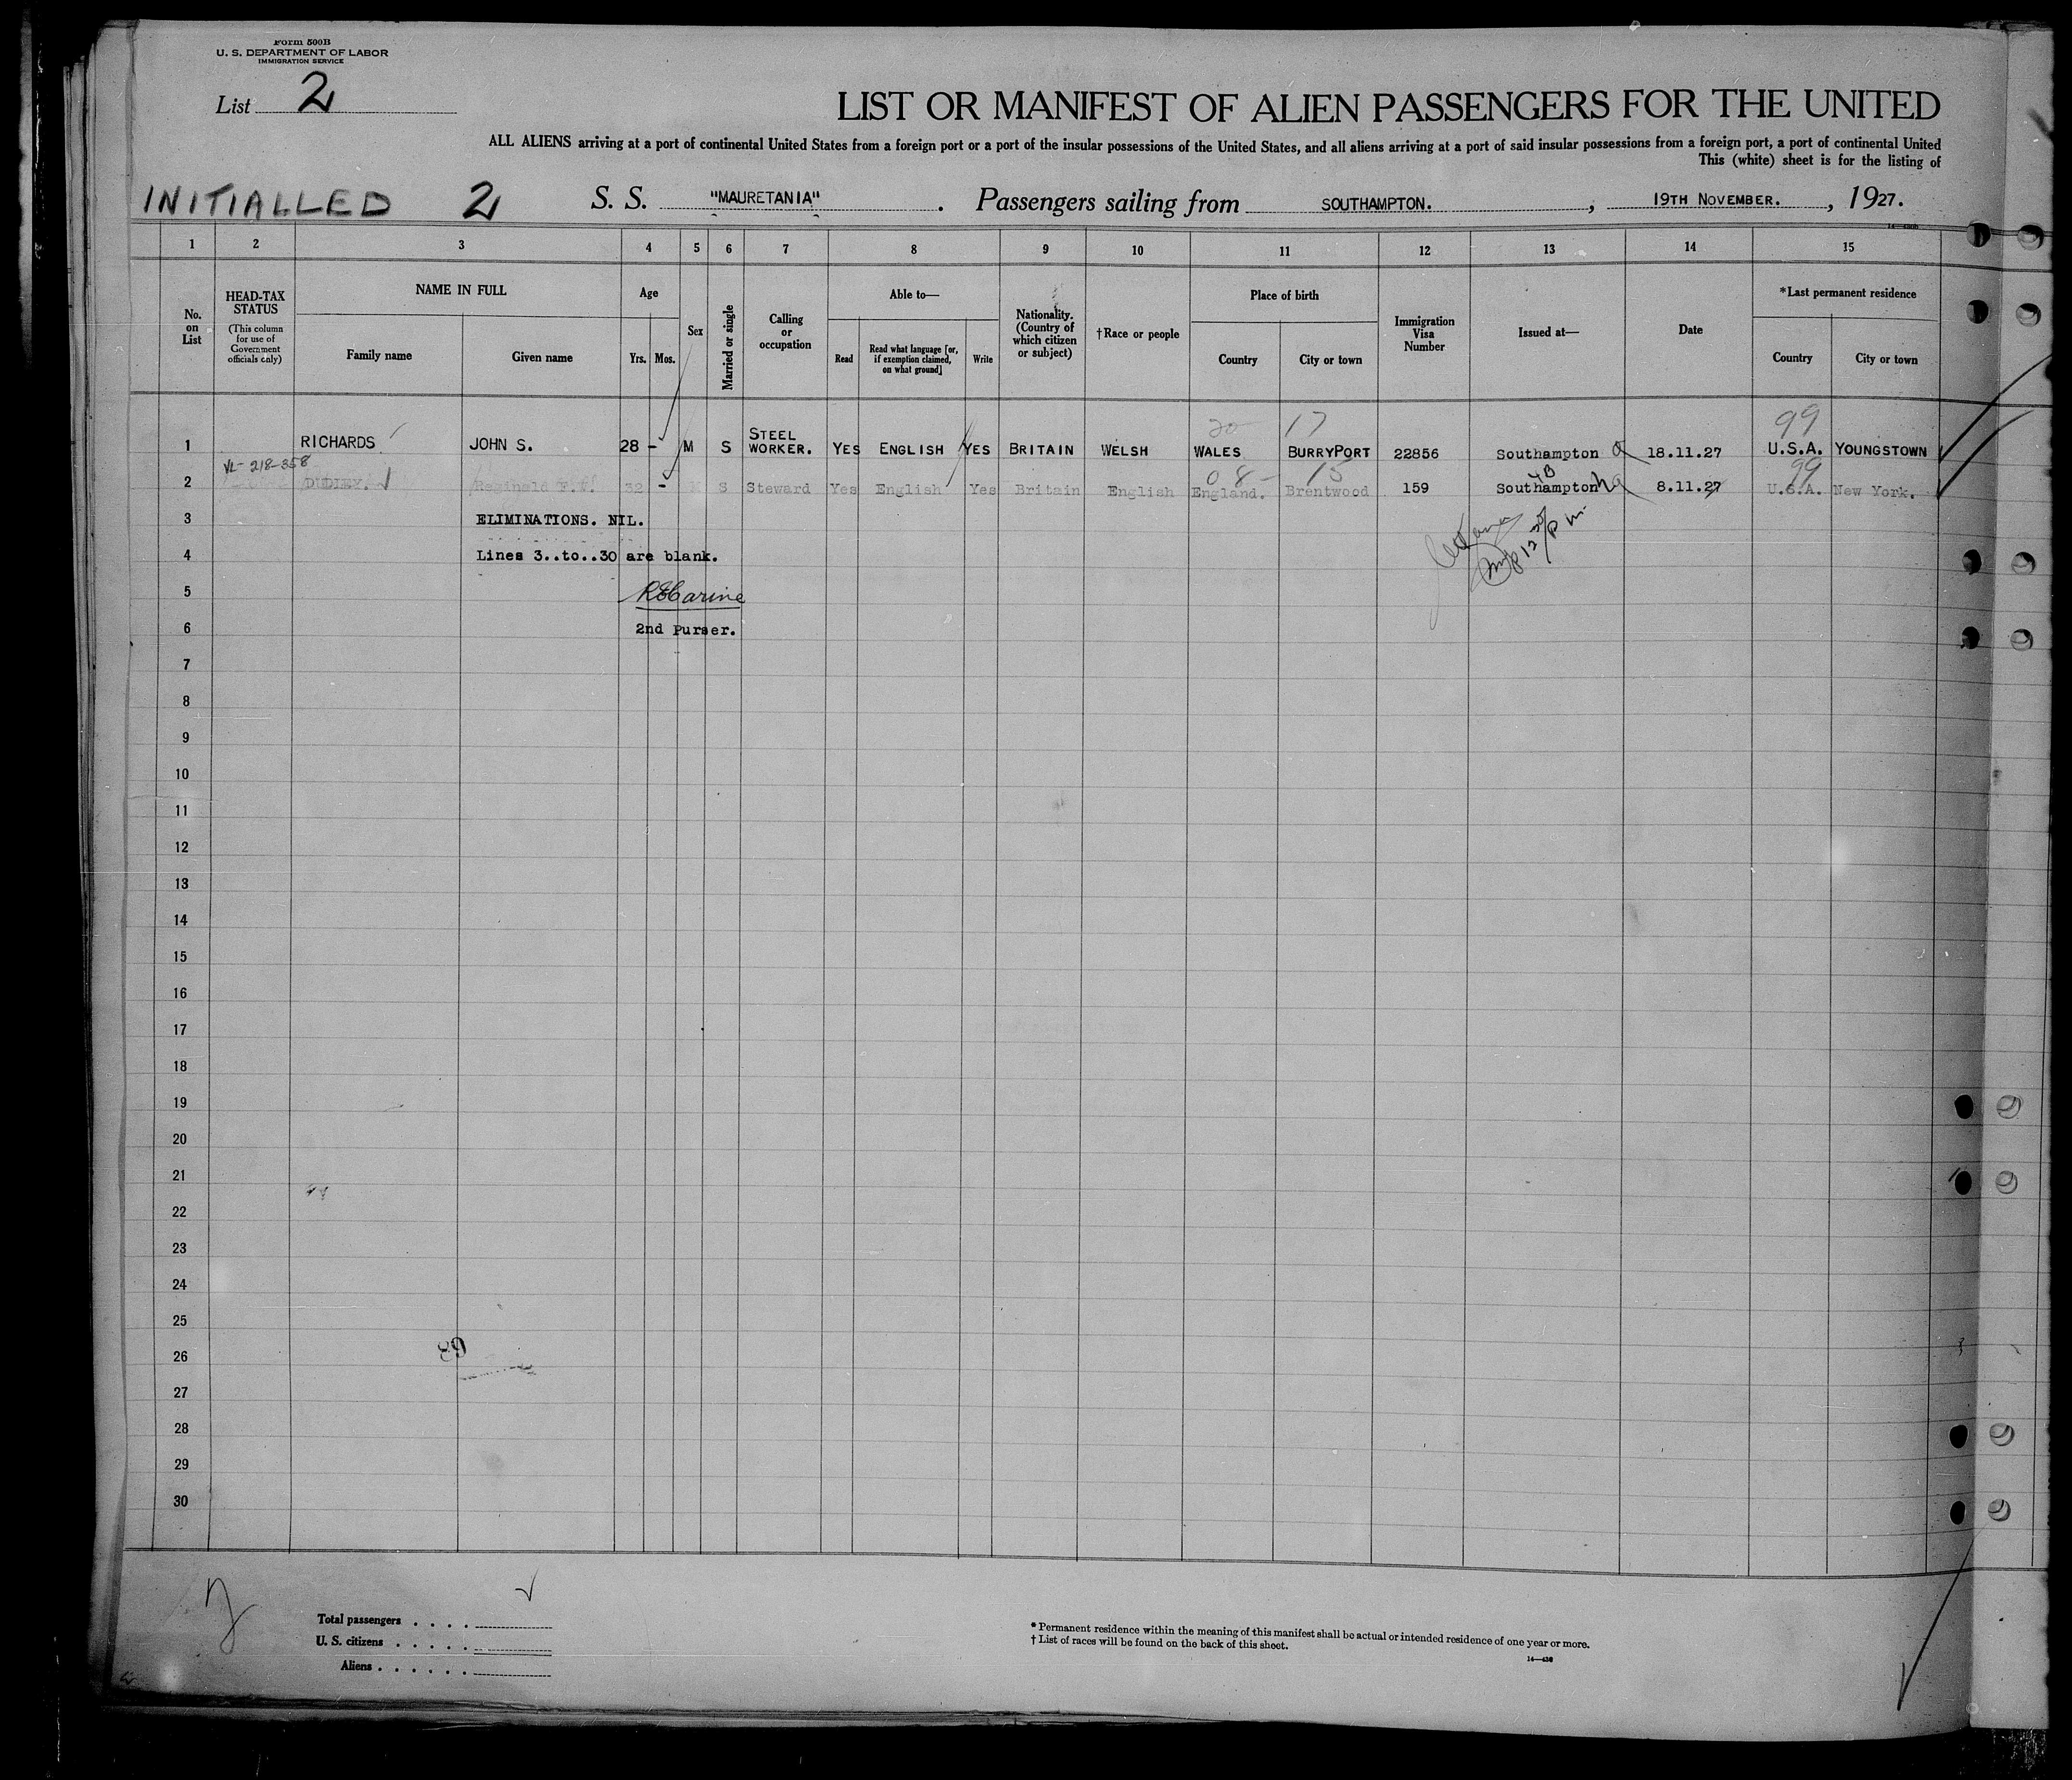 Form 500B
U. S. DEPARTMENT OF LABOR
IMMIGRATION SERVICE
List 2
LIST OR MANIFEST OF ALIEN PASSENGERS FOR THE UNITED
ALL ALIENS arriving at a port of continental United States from a foreign port or a port of the insular possessions of the United States, and all aliens arriving at a port of said insular possessions from a foreign port, a port of continental United
This (white) sheet is for the listing of
INITIALLED 2 S. S. "MAURETANIA". Passengers sailing from SOUTHAMPTON., 19TH NOVEMBER., 1927.
1 2 3 4 5 6 7 8 9 10 11 12 13 14 15
No. on List
HEAD-TAX STATUS (This column for use of Government officials only)
NAME IN FULL
Family name Given name
Age
Yrs. Mos.
Sex
Married or single
Calling or occupation
Able to—
Read Read what language [or, if exemption claimed, on what ground] Write
Nationality. (Country of which citizen or subject)
†Race or people
Place of birth
Country City or town
Immigration Visa Number
Issued at—
Date
*Last permanent residence
Country City or town
20 17 99
1 RICHARDS JOHN S. 28 - M S STEEL WORKER. YES ENGLISH YES BRITAIN WELSH WALES BURRYPORT 22856 Southampton 18.11.27 U.S.A. YOUNGSTOWN
VL-218-358 08- 15 99
2 DUDLEY. Reginald F. 32 - M S Steward Yes English Yes Britain English England. Brentwood 159 Southampton 8.11.27 U.S.A. New York.
3 ELIMINATIONS. NIL.
4 Lines 3..to..30 are blank.
5
6 2nd Purser.
7
8
9
10
11
12
13
14
15
16
17
18
19
20
21
22
23
24
25
26
27
28
29
30
89
Total passengers . . . .
U. S. citizens . . . . .
Aliens . . . . . .
* Permanent residence within the meaning of this manifest shall be actual or intended residence of one year or more.
† List of races will be found on the back of this sheet.
14—430